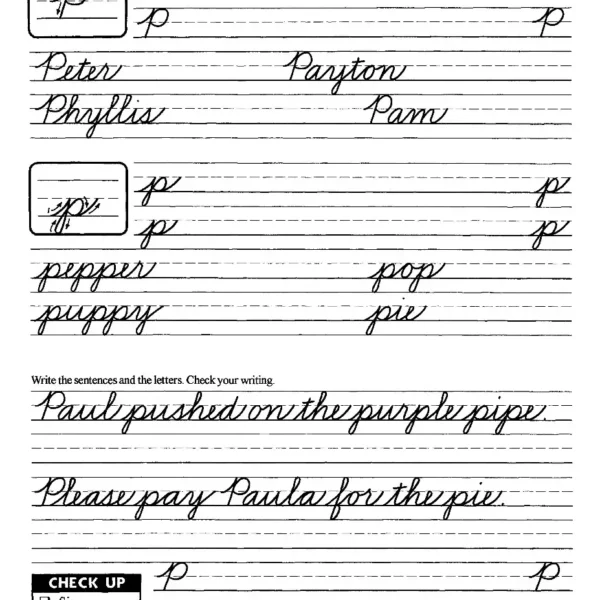 p
P P
Peter Payton
Phyllis Pam
p p p
p p
pepper pop
puppy pie
Write the sentences and the letters. Check your writing.
Paul pushed on the purple pipe.
Please pay Paula for the pie.
P p
CHECK UP